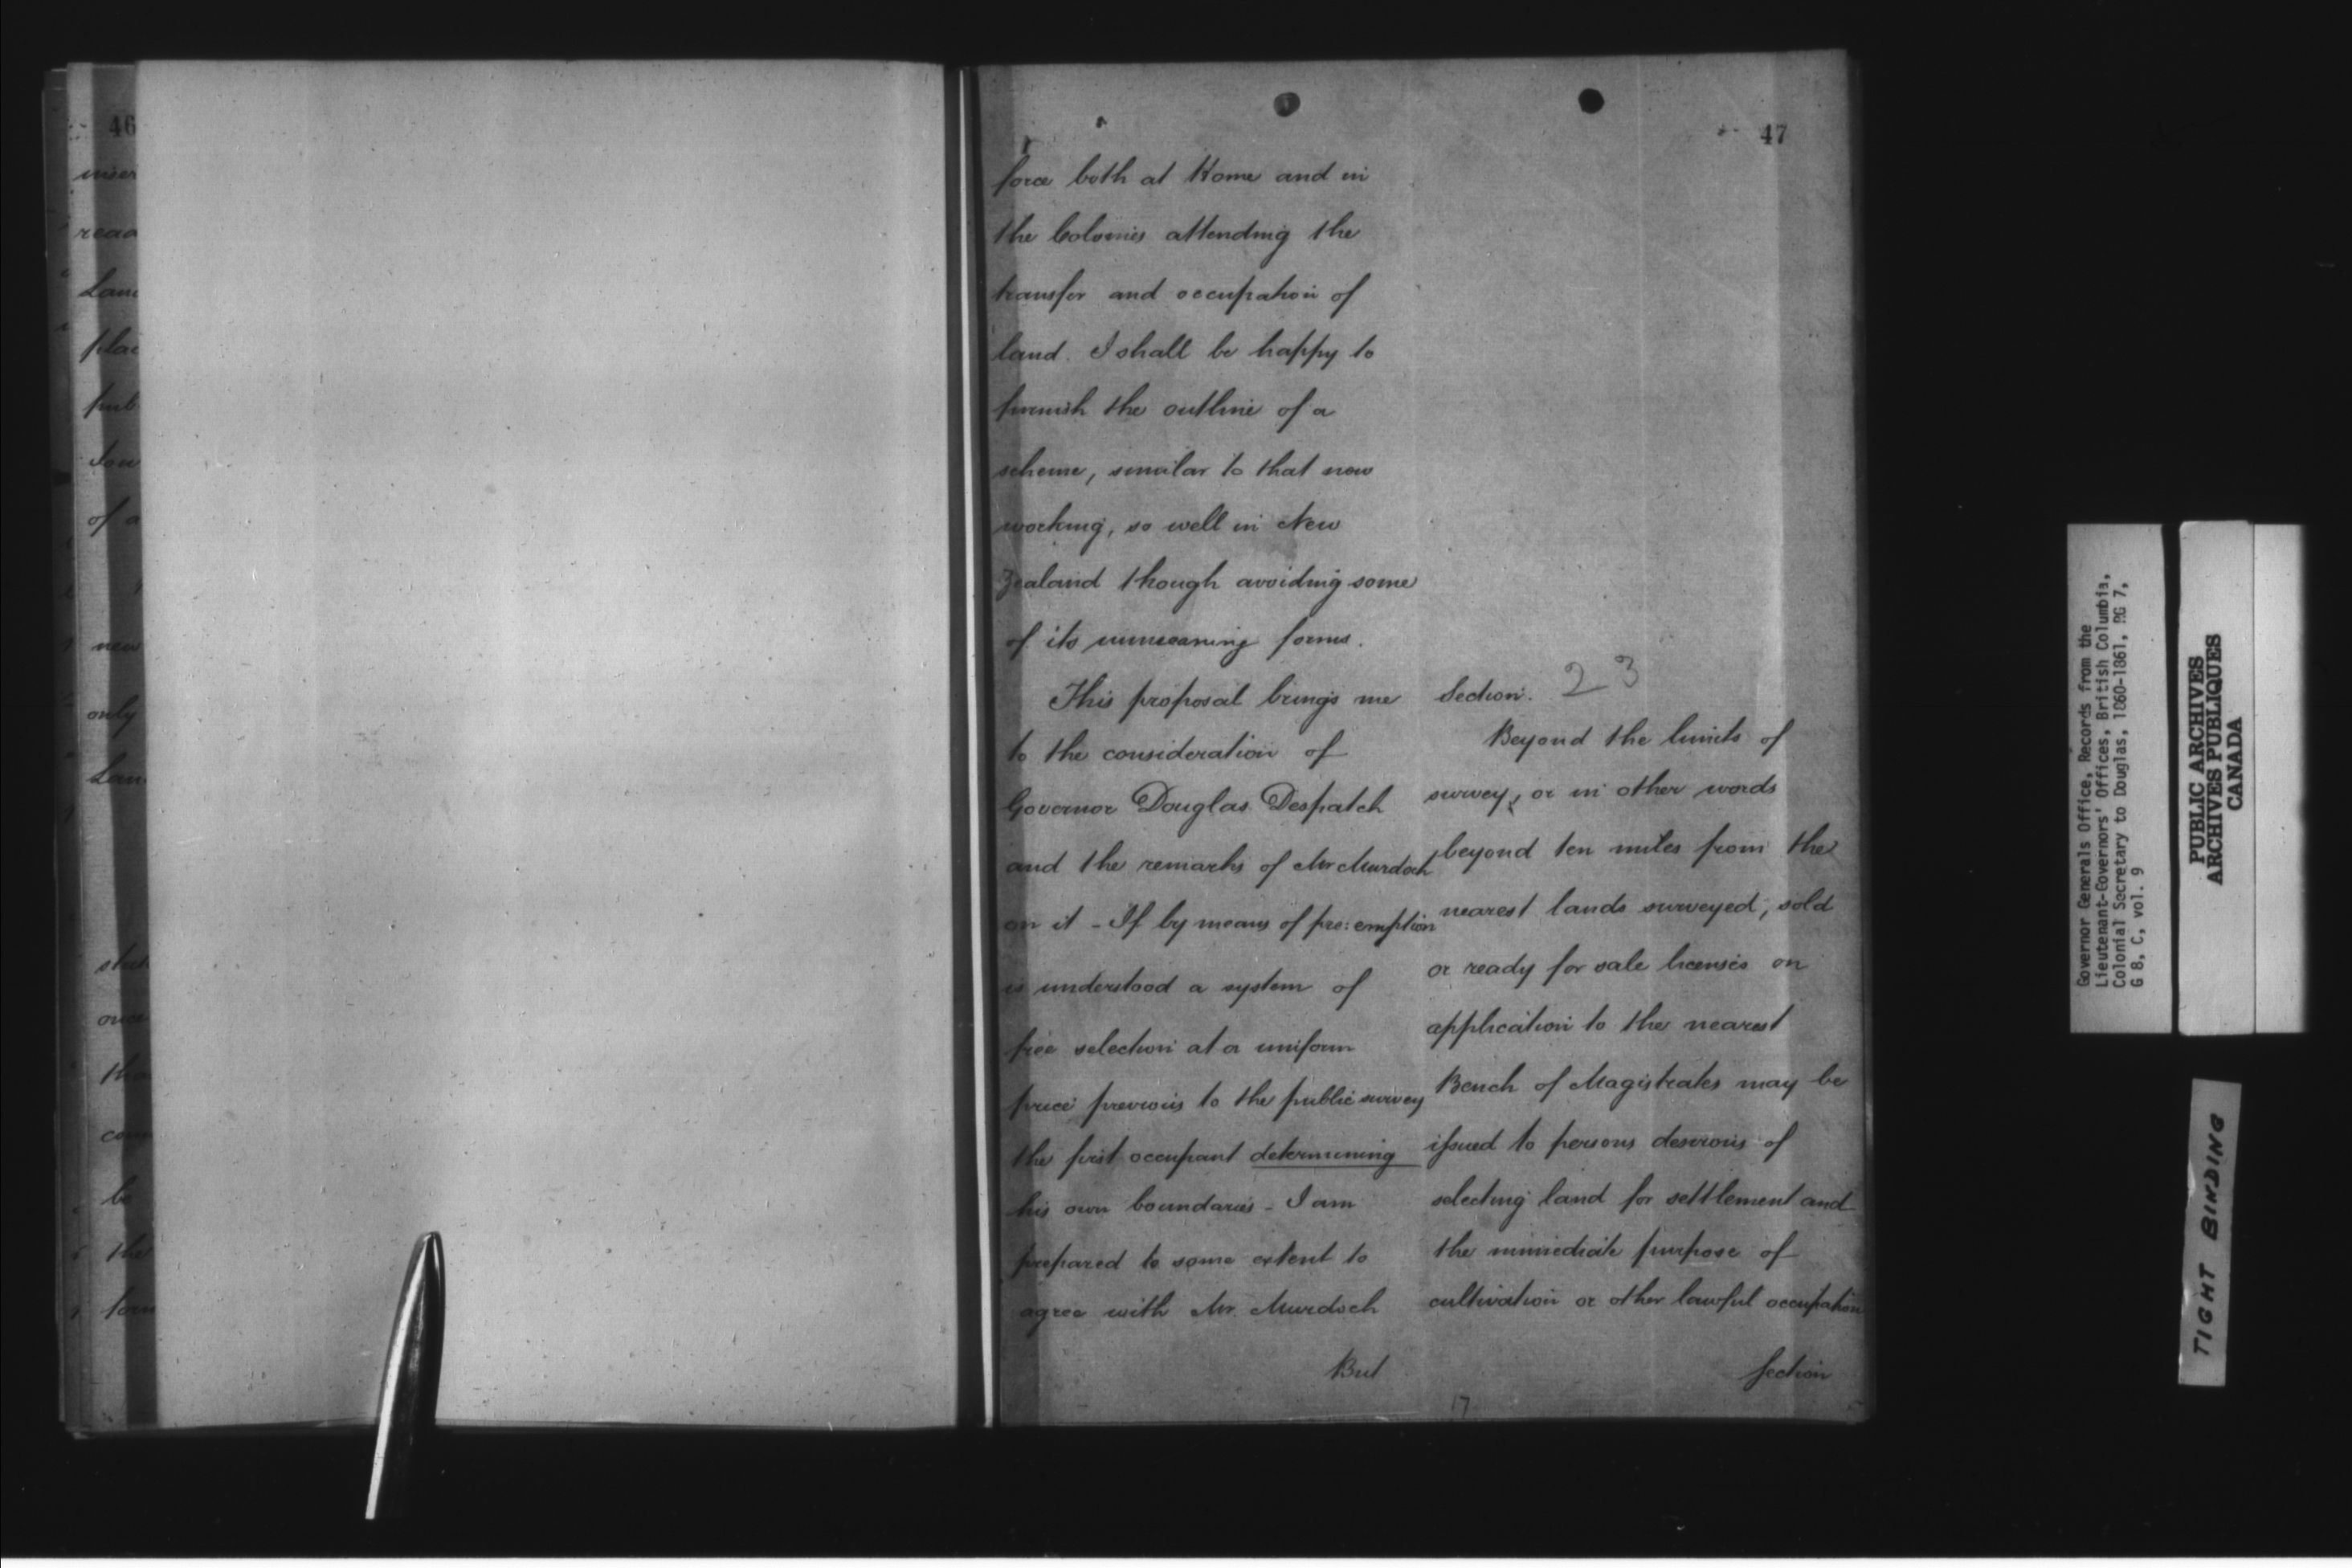 46
land
plac
pub
of a
new
only
Lan
that
be
the
form
47
force both at Home and in
the Colonies attending the
transfer and occupation of
land. I shall be happy to
furnish the outline of a
scheme, similar to that now
working, so well in New
Zealand though avoiding some
of its unmeaning forms.
This proposal brings me
to the consideration of
Governor Douglas Despatch
and the remarks of Mr Murdoch
on it - If by means of pre:emption
is understood a system of
free selection at a uniform
price previous to the public survey
the first occupant determining
his own boundaries - I am
prepared to some extent to
agree with Mr. Murdoch
But
Section. 23
Beyond the limits of
survey, or in other words
beyond ten miles from the
nearest lands surveyed, sold
or ready for sale licenses on
application to the nearest
Bench of Magistrates may be
issued to persons desirous of
selecting land for settlement and
the immediate purpose of
cultivation or other lawful occupation
Section
17
Governor Generals Office, Records from the
Lieutenant-Governors' Offices, British Columbia,
Colonial Secretary to Douglas, 1860-1861, RG 7,
G 8, C, vol. 9
PUBLIC ARCHIVES
ARCHIVES PUBLIQUES
CANADA
TIGHT BINDING